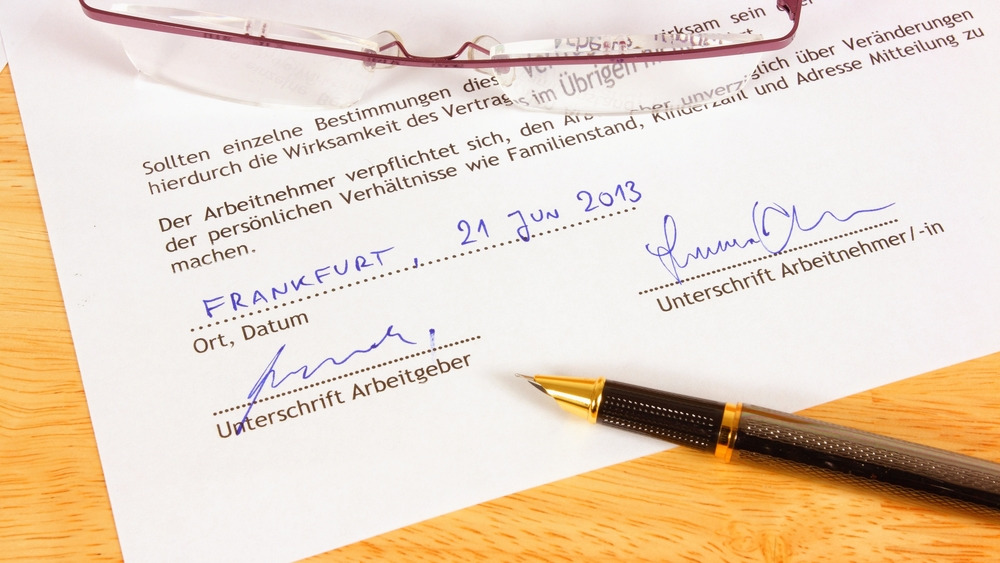 wirksam sein
Sollten einzelne Bestimmungen dies
hierdurch die Wirksamkeit des Vertrages im Übrigen
Der Arbeitnehmer verpflichtet sich, den unverzüglich über Veränderungen
der persönlichen Verhältnisse wie Familienstand, Kinderzahl und Adresse Mitteilung zu
machen.
FRANKFURT, 21 JUN 2013
Ort, Datum
Unterschrift Arbeitnehmer/-in
Unterschrift Arbeitgeber